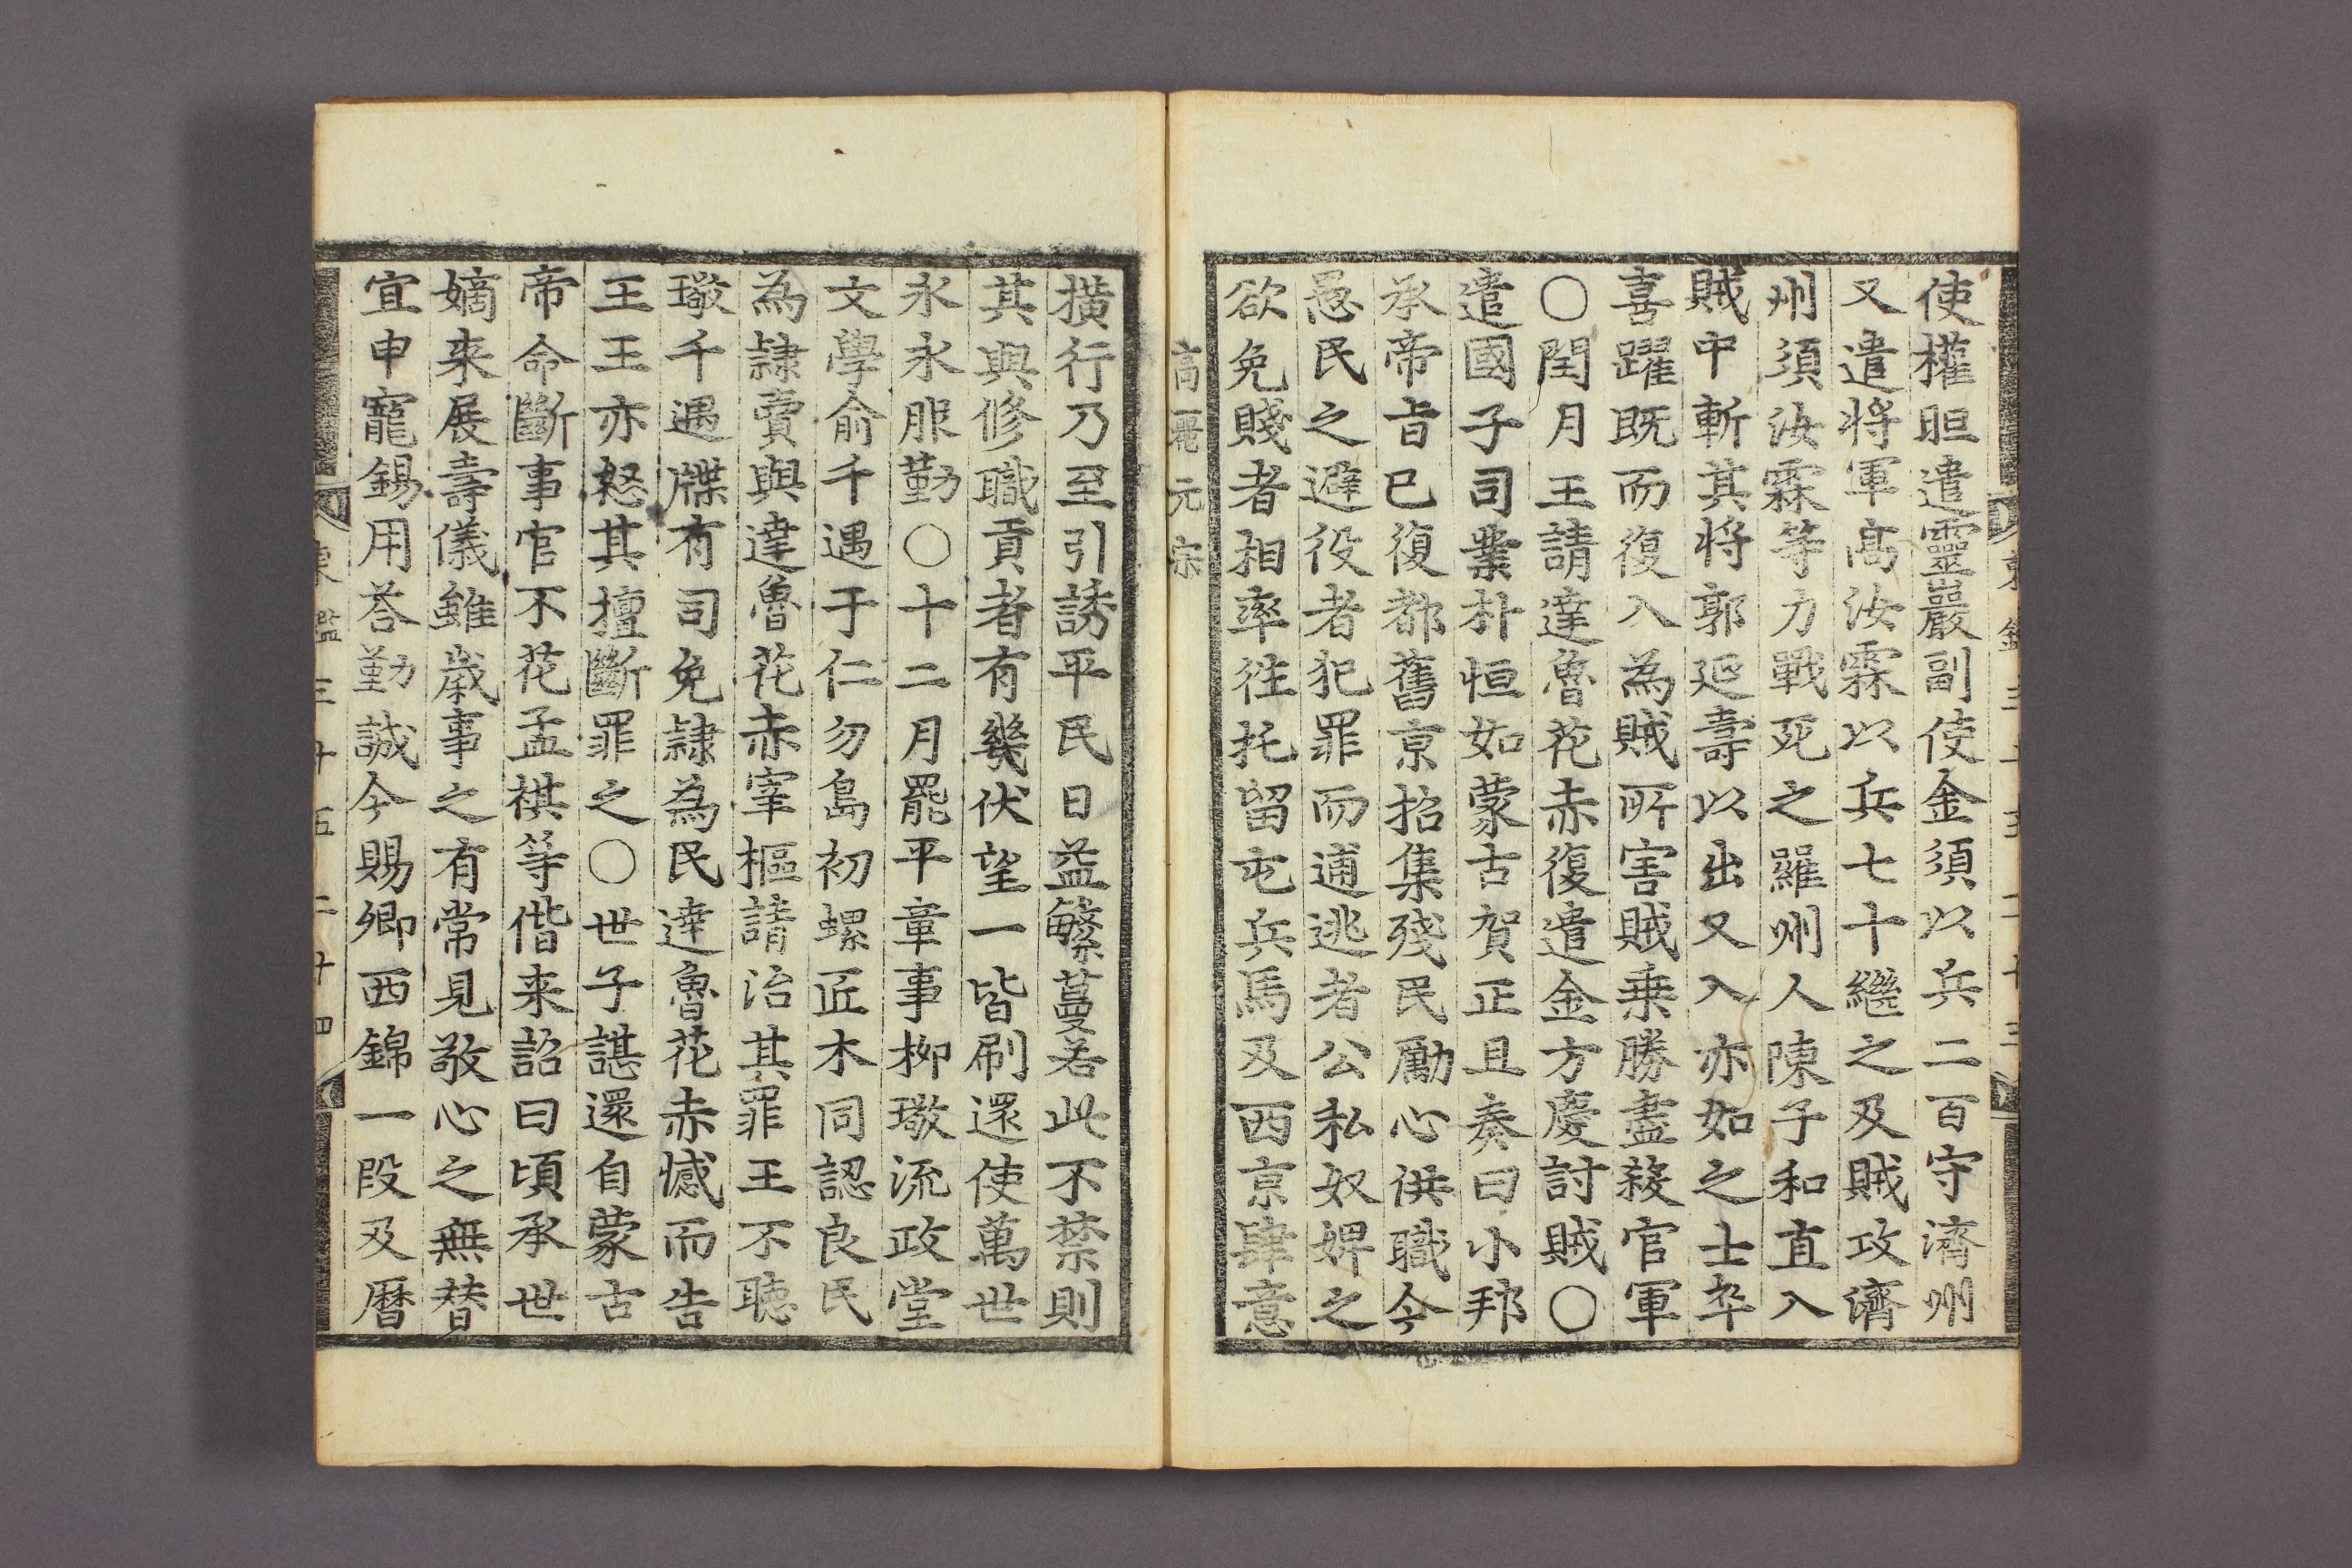 使權㫜遣靈巖副使金須以兵二百守濟州
又遣將軍高汝霖以兵七十繼之及賊攻濟
州須汝霖等力戰死之羅州人陳子和直入
賊中斬其將郭延壽以出又入亦如之士卒
喜躍旣而復入為賊所害賊乗勝盡殺官軍
○閏月王請達魯花赤復遣金方慶討賊○
遣國子司業朴恒如蒙古賀正且奏曰小邦
承帝旨已復都舊京招集殘民勵心供職今
愚民之避役者犯罪而逋逃者公私奴婢之
欲免賤者相率徃托留屯兵馬及西京肆意
高麗元宗
橫行乃至引誘平民日益繁蔓若此不禁則
其與修職貢者有幾伏望一皆刷還使萬世
永永服勤○十二月罷平章事柳璥流政堂
文學俞千遇于仁勿島初螺匠木同認良民
為隷賣與達魯花赤宰樞請治其罪王不聽
璥千遇牒有司免隷為民達魯花赤憾而告
王王亦怒其擅斷罪之○世子諶還自蒙古
帝命斷事官不花孟祺等偕来詔曰頃承世
嫡来展壽儀雖歲事之有常見敬心之無替
宜申寵錫用荅勤誠今賜卿西錦一段及曆